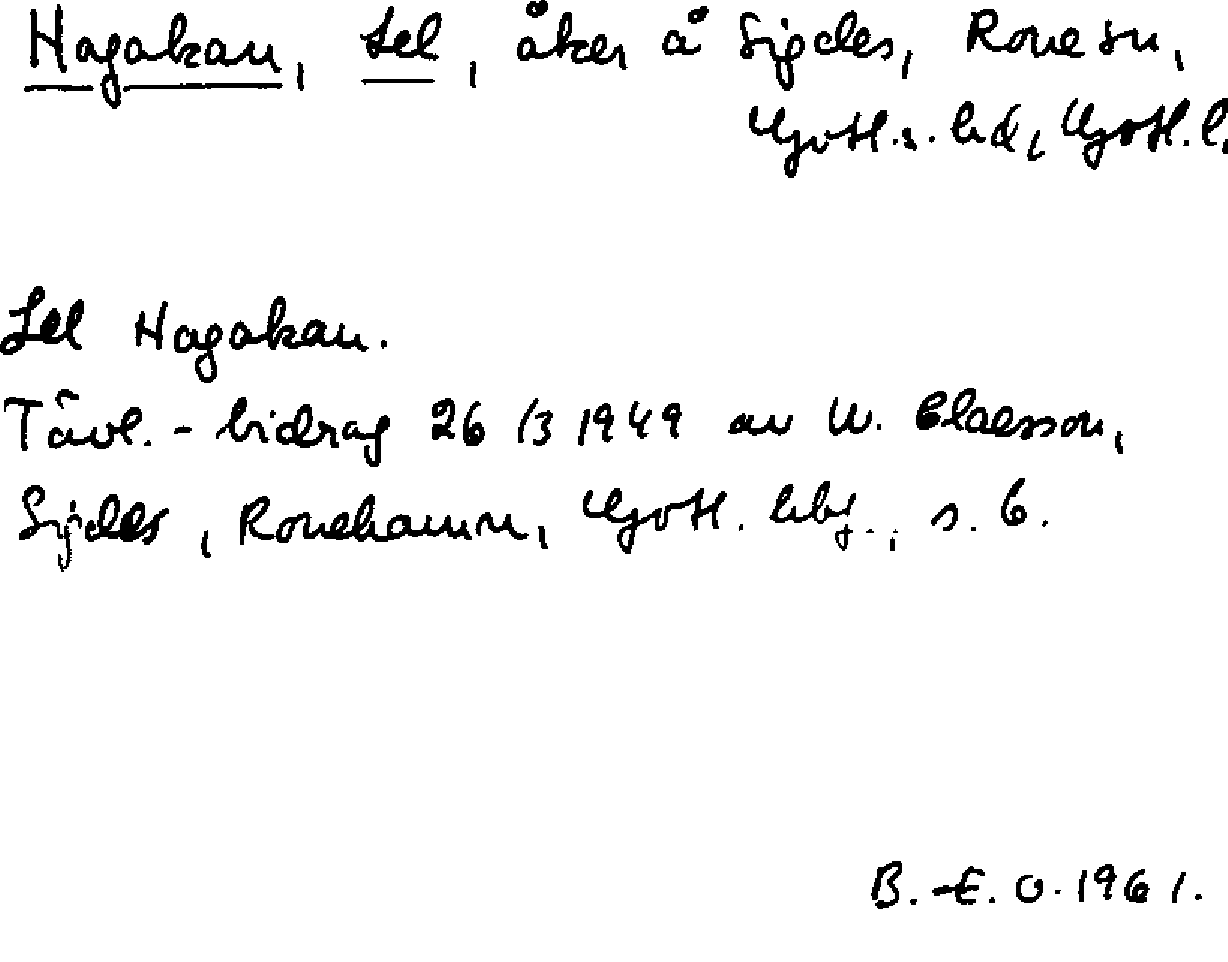 Hagakau, Lel, åker å Sigdes, Rone sn,
Gotl.s. hd, Gotl. l.
Lel Hagakau.
Tävl.-bidrag 26/3 1949 av W. Claesson,
Sigdes, Ronehamn, Gotl. hbf., s. 6.
B.-E. O. 1961.